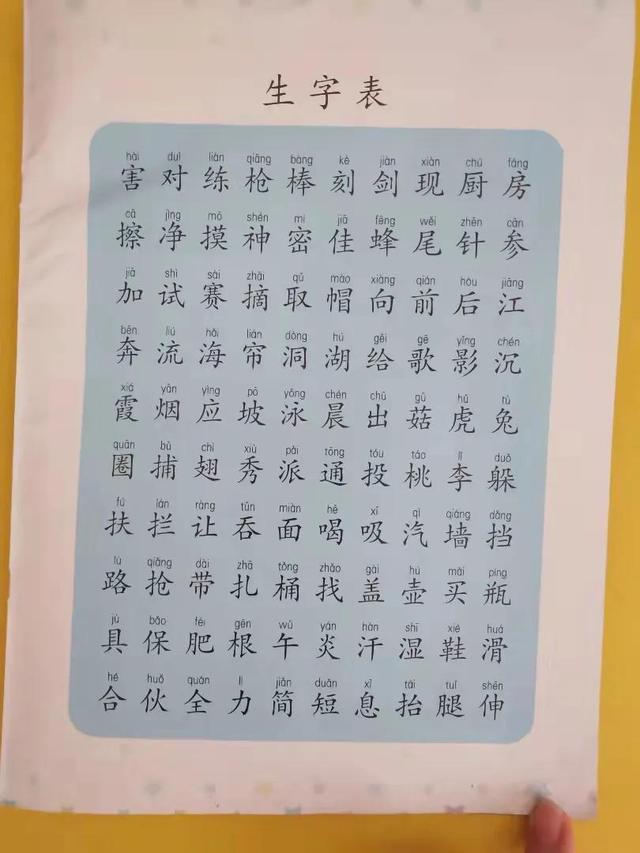 生字表
hài duì liàn qiāng bàng kè jiàn xiàn chú fáng
害 对 练 枪 棒 刻 剑 现 厨 房
cā jìng mō shén mì jiā fēng wěi zhēn cān
擦 净 摸 神 密 佳 蜂 尾 针 参
jiā shì sài zhāi qǔ mào xiàng qián hòu jiāng
加 试 赛 摘 取 帽 向 前 后 江
bēn liú hǎi lián dòng hú gěi gē yǐng chén
奔 流 海 帘 洞 湖 给 歌 影 沉
xiá yān yìng pō yǒng chén chū gū hǔ tù
霞 烟 应 坡 泳 晨 出 菇 虎 兔
quān bǔ chì xiù pài tōng tóu táo lǐ duǒ
圈 捕 翅 秀 派 通 投 桃 李 躲
fú lán ràng tūn miàn hē xī qì qiáng dǎng
扶 拦 让 吞 面 喝 吸 汽 墙 挡
lù qiǎng dài zhā tǒng zhǎo gài hú mǎi píng
路 抢 带 扎 桶 找 盖 壶 买 瓶
jù bǎo féi gēn wǔ yán hàn shī xié huá
具 保 肥 根 午 炎 汗 湿 鞋 滑
hé huǒ quán lì jiǎn duǎn xī tái tuǐ shēn
合 伙 全 力 简 短 息 抬 腿 伸